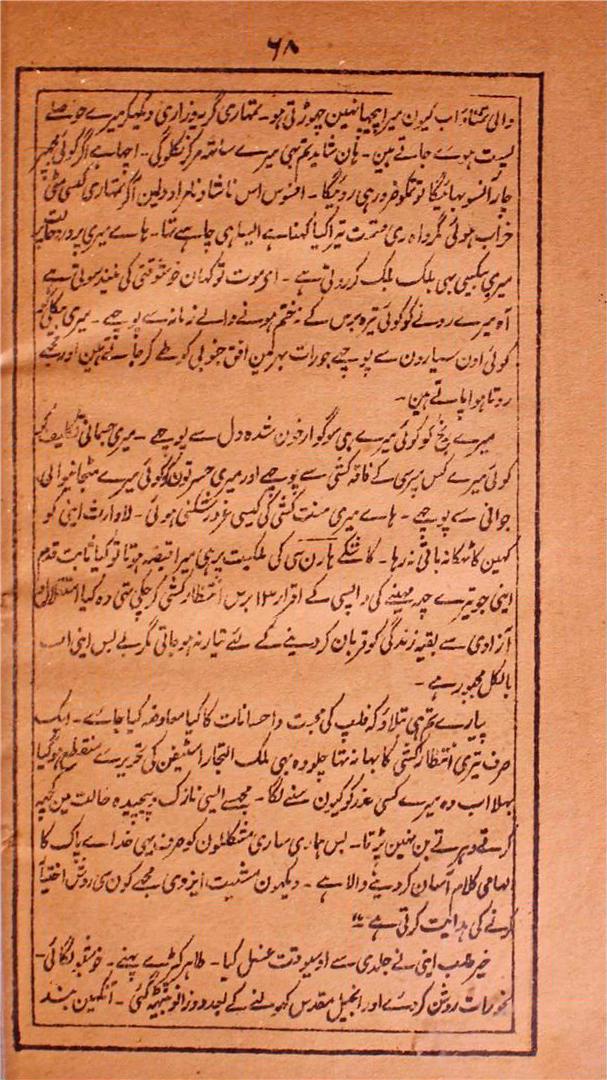 ۶۸
والی تمنا۔ اب کیون میرا پیچھا نہین چھوڑتی ہو۔ تمہاری گریہ وزاری دیکھکر میرے حوصلے
پست ہوے جاتے ہین۔ ہان شاید تم ہی میرے ساتھ مر کر نکلوگی۔ اچھا ہے اگر کوئی مجھپر
چار آنسو بہائیگا تو تمکو ضرور ہی روئیگا۔ افسوس اس ناشاد نامراد دلمین اگر تمہاری کیسی مٹی
خراب ہوئی مگر واہ ری قسمت تیرا کیا کہنا ہے ایسا ہی چاہے تھا۔ ہاے میری پر درد حالت پر
میری بیکسی بھی بلک بلک کر روتی ہے۔ ای موت تو کہان خوشوقتی کی نیند سوتی ہے
آہ میرے رونے کو کوئی تیرہ برس کے نہ ختم ہونے والے زمانہ سے پوچھے۔ میری
کوئی اون سیارون سے پوچھے جو رات بھر مین افق جنوبی کو طے کر جاتے ہین اور مجھے
روتا ہوا پاتے ہین۔
میرے رنج کو کوئی میرے ہی سوگوار خون شدہ دل سے پوچھے۔ میری جسمانی تکالیف کو
کوئی میرے کس مپرسی کے فاقہ کشی سے پوچھے اور میری حسرتون کو کوئی میرے مٹجانیوالی
جوانی سے پوچھے۔ ہاے میری منت کشی کی کیسی غرور شکنی ہوئی۔ لاوارث اینی کو
کہین کا ٹھکانہ باقی نہ رہا۔ کاشکے ہارن سی کی ملکیت پر ہی میرا قبضہ ہوتا تو کیا ثابت قدم
اینی جو تیرے چھہ مہینے کی واپسی کے اقرار ۱۳ برس انتظار کشی کر چکی تھی وہ کیا استقلال و
آزادی سے بقیہ زندگی کو قربان کر دینے کے لئے تیار نہ ہو جاتی مگر بے بس اینی اب
بالکل مجبور ہے۔
پیارے تم ہی بتلاؤ کہ فلپ کی محبت و احسانات کا کیا معاوضہ کیا جاے۔ ایک
صرف تیری انتظار کشی کا بہانہ تھا چلو وہ بھی ملک التجار اسٹیفن کی تحریر سے منقطع ہو گیا
بھلا اب وہ میرے کسی عذر کو کیون سننے لگا۔ مجھسے ایسی نازک و پیچیدہ حالت مین کچھ
کرتے دہرتے بن نہین پڑتا۔ بس ہماری ساری مشکلون کو صرف یہی خداے پاک کا
الہامی کلام آسان کر دینے والا ہے۔ دیکھون مشیت ایزدی مجھے کون سی روش اختیار
کرنے کی ہدایت کرتی ہے۔"
خیر طلب اینی نے جلدی سے اوسیوقت غسل کیا۔ طاہر کپڑے پہنے۔ خوشبو لگائی۔
بخورات روشن کر دئے اور انجیل مقدس کھولنے کے بعد دو زانو بیٹھہ گئی۔ آنکھین بند